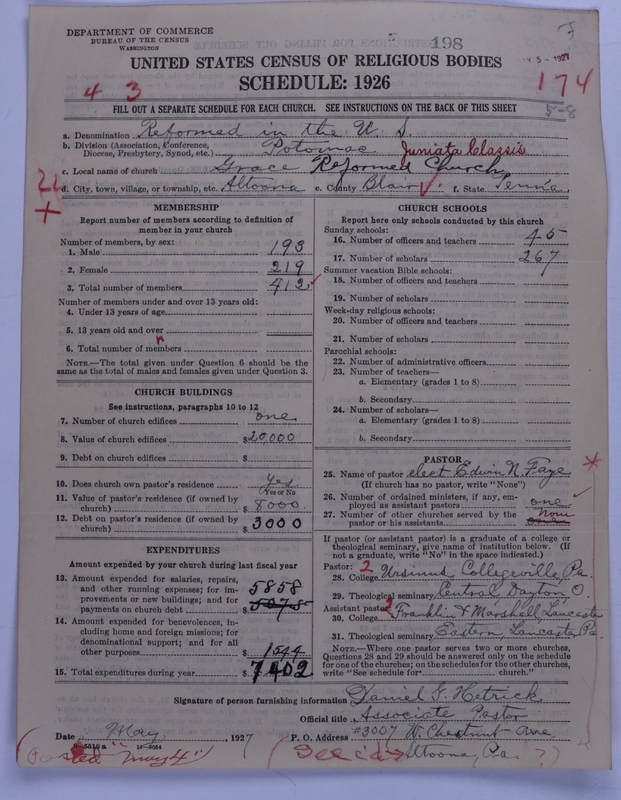 DEPARTMENT OF COMMERCE
BUREAU OF THE CENSUS
WASHINGTON
198
5 - 1927
UNITED STATES CENSUS OF RELIGIOUS BODIES
SCHEDULE: 1926
174
4 3
FILL OUT A SEPARATE SCHEDULE FOR EACH CHURCH. SEE INSTRUCTIONS ON THE BACK OF THIS SHEET
5-8
a. Denomination Reformed in the U. S.
b. Division (Association, Conference, Diocese, Presbytery, Synod, etc.) Potomac Juniata Classis
c. Local name of church Grace Reformed Church
d. City, town, village, or township, etc. Altoona e. County Blair f. State Penna.
MEMBERSHIP
Report number of members according to definition of
member in your church
Number of members, by sex:
1. Male 193
2. Female 219
3. Total number of members 412
Number of members under and over 13 years old:
4. Under 13 years of age
5. 13 years old and over
6. Total number of members
NOTE.—The total given under Question 6 should be
same as the total of males and females given under Question 3.
CHURCH BUILDINGS
See instructions, paragraphs 10 to 12
7. Number of church edifices one
8. Value of church edifices $20,000
9. Debt on church edifices $
10. Does church own pastor's residence Yes
(Yes or No)
11. Value of pastor's residence (if owned by
church) $8000
12. Debt on pastor's residence (if owned by
church) $3000
EXPENDITURES
Amount expended by church during last fiscal year
13. Amount expended for salaries, repairs,
and other running expenses; for im-
provements or new buildings; and for
payments on church debt $ 5858
14. Amount expended for benevolences, in-
cluding home and foreign missions; for
denominational support; and for all
other purposes $ 1544
15. Total expenditures during year $ 7402
CHURCH SCHOOLS
Report here only schools conducted by this church
Sunday schools:
16. Number of officers and teachers 45
17. Number of scholars 267
Summer vacation Bible schools:
18. Number of officers and teachers
19. Number of scholars
Week-day religious schools:
20. Number of officers and teachers
21. Number of scholars
Parochial schools:
22. Number of administrative officers
23. Number of teachers—
a. Elementary (grades 1 to 8)
b. Secondary
24. Number of scholars—
a. Elementary (grades 1 to 8)
b. Secondary
PASTOR
25. Name of pastor elect Edwin N. Faye
(If church has no pastor, write "None")
26. Number of ordained ministers, if any, em-
ployed as assistant pastors one
27. Number of other churches served by the
pastor or his assistants None
If pastor (or assistant pastor) is a graduate of a college or
theological seminary, give name of institution below. (If
not a graduate, write "No" in the space indicated.)
Pastor: 2
28. College Ursinus, Collegeville, Pa.
29. Theological seminary Central Dayton O.
Assistant pastor:
30. College Franklin & Marshall, Lancaster
31. Theological seminary Eastern, Lancaster, Pa.
NOTE.—Where one pastor serves two or more churches,
Questions 28 and 29 should be answered only on the schedule
for one of the churches; on the schedules for the other churches,
write "See schedule for church."
Signature of person furnishing information Daniel G. Hetrick
Official title Associate Pastor
Date May, 1927 P. O. Address #3007 W. Chestnut Ave,
Altoona, Pa.